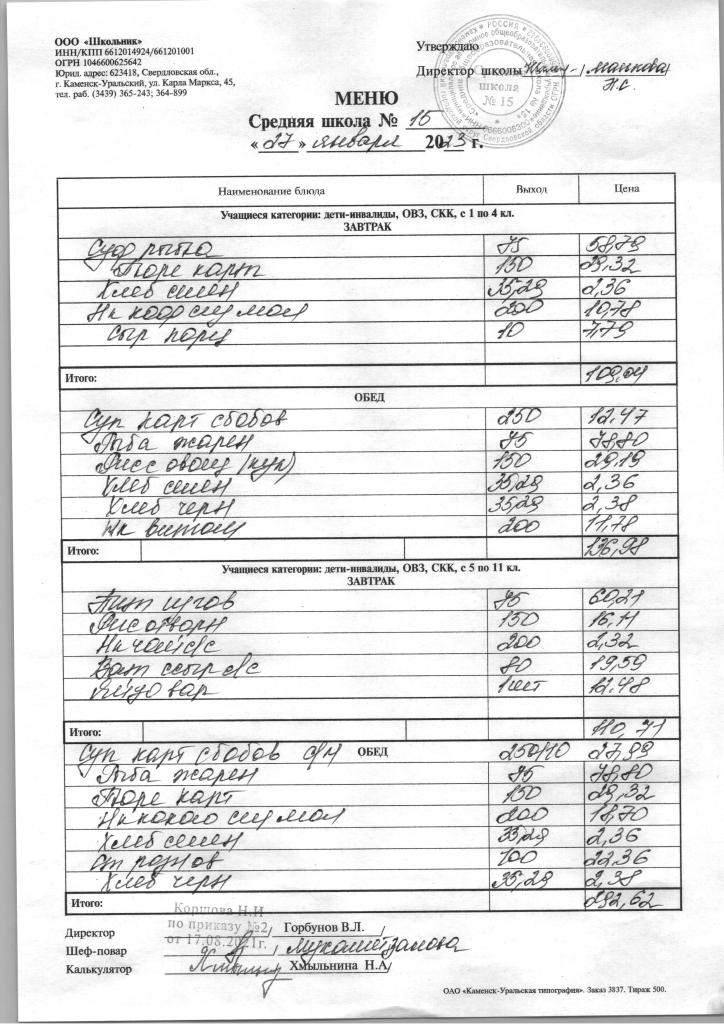 ООО «Школьник»
ИНН/КПП 6612014924/661201001
ОГРН 1046600625642
Юрил. адрес: 623418, Свердловская обл.,
г. Каменск-Уральский, ул. Карла Маркса, 45,
тел. раб. (3439) 365-243; 364-899
Утверждаю
Директор школы
школа
№ 15
МЕНЮ
Средняя школа № 15
«27» января 2023 г.
Наименование блюда Выход Цена
Учащиеся категории: дети-инвалиды, ОВЗ, СКК, с 1 по 4 кл.
ЗАВТРАК
рыба 75 58,79
Пюре карт 150 29,32
Хлеб пшен 35,29 2,36
Нк кофе сгу мол 200 10,78
Сыр порц 10 7,79
Итого: 109,04
ОБЕД
Суп карт сбобов 250 12,47
Рыба жарен 75 78,80
150 29,19
Хлеб пшен 35,29 2,36
Хлеб черн 35,29 2,38
Нк витам 200 11,78
Итого: 136,98
Учащиеся категории: дети-инвалиды, ОВЗ, СКК, с 5 по 11 кл.
ЗАВТРАК
75 60,21
Рис отварн 150 16,11
Нк чай с/с 200 2,32
Бат ссыр с/с 80 19,59
Яйцо вар 1 шт 12,48
Итого: 110,71
Суп карт сбобов с/м ОБЕД 250/10 27,99
Рыба жарен 75 78,80
Пюре карт 150 29,32
Нк какао сгу мол 200 18,70
Хлеб пшен 35,29 2,36
100 22,36
Хлеб черн 35,29 2,38
Итого:
Коршова Н.И
по приказу №2
Директор / Горбунов В.Л. /
от 17.08.2021г.
Шеф-повар / /
Калькулятор / Хмыльнина Н.А/
ОАО «Каменск-Уральская типография». Заказ 3837. Тираж 500.